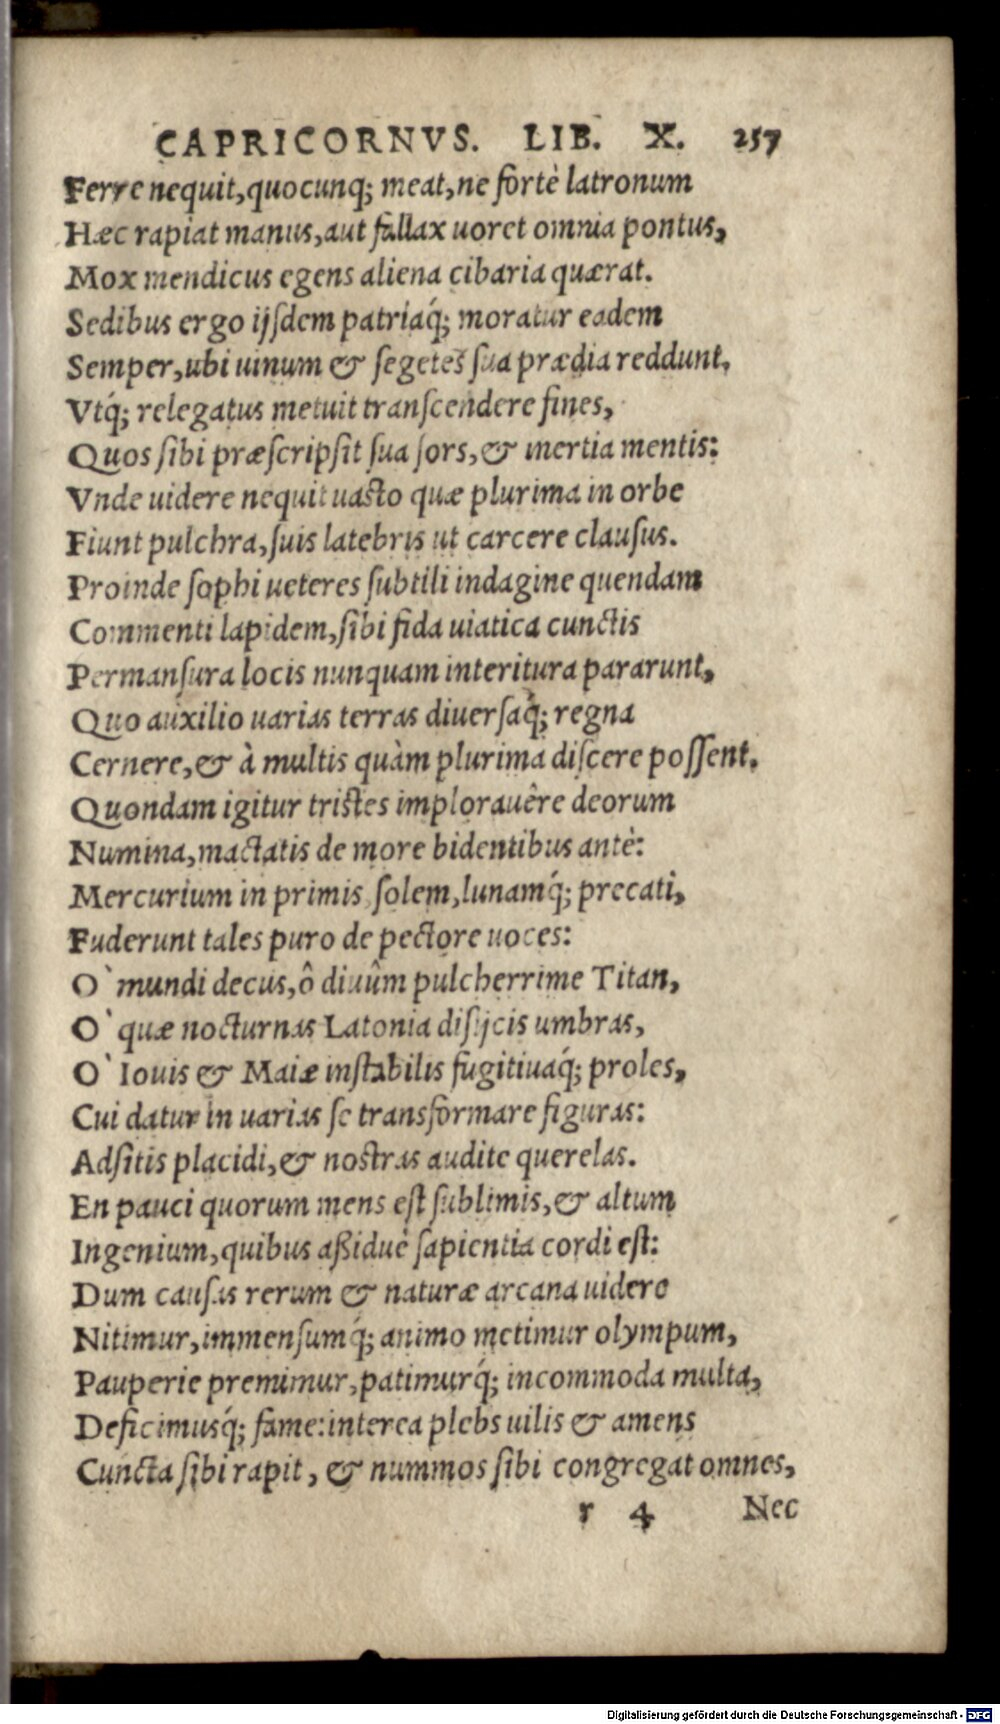 CAPRICORNVS. LIB. X. 257
Ferre nequit, quocunq; meat, ne fortè latronum
Hæc rapiat manus, aut fallax uoret omnia pontus,
Mox mendicus egens aliena cibaria quærat.
Sedibus ergo ijſdem patriaq́; moratur eadem
Semper, ubi uinum & ſegetes ſua prædia reddunt,
Vtq́; relegatus metuit tranſcendere fines,
Quos ſibi præſcripſit ſua ſors, & inertia mentis:
Vnde uidere nequit uasto quæ plurima in orbe
Fiunt pulchra, ſuis latebris ut carcere clauſus.
Proinde ſophi ueteres ſubtili indagine quendam
Commenti lapidem, ſibi fida uiatica cunctis
Permanſura locis nunquam interitura pararunt,
Quo auxilio uarias terras diuerſaq́; regna
Cernere, & à multis quàm plurima diſcere poſſent.
Quondam igitur tristes implorauêre deorum
Numina, mactatis de more bidentibus antè:
Mercurium in primis, ſolem, lunamq́; precati,
Fuderunt tales puro de pectore uoces:
O` mundi decus, ô diuûm pulcherrime Titan,
O` quæ nocturnas Latonia diſijcis umbras,
O` Iouis & Maiæ instabilis fugitiuaq́; proles,
Cui datur in uarias ſe transformare figuras:
Adſitis placidi, & nostras audite querelas.
En pauci quorum mens eſt ſublimis, & altum
Ingenium, quibus aßiduè ſapientia cordi eſt:
Dum cauſas rerum & naturæ arcana uidere
Nitimur, immenſumq́; animo metimur olympum,
Pauperie premimur, patimurq́; incommoda multa,
Deficimusq́; fame: interea plebs uilis & amens
Cuncta ſibi rapit, & nummos ſibi congregat omnes,
r 4 Nec
Digitalisierung gefördert durch die Deutsche Forschungsgemeinschaft - DFG